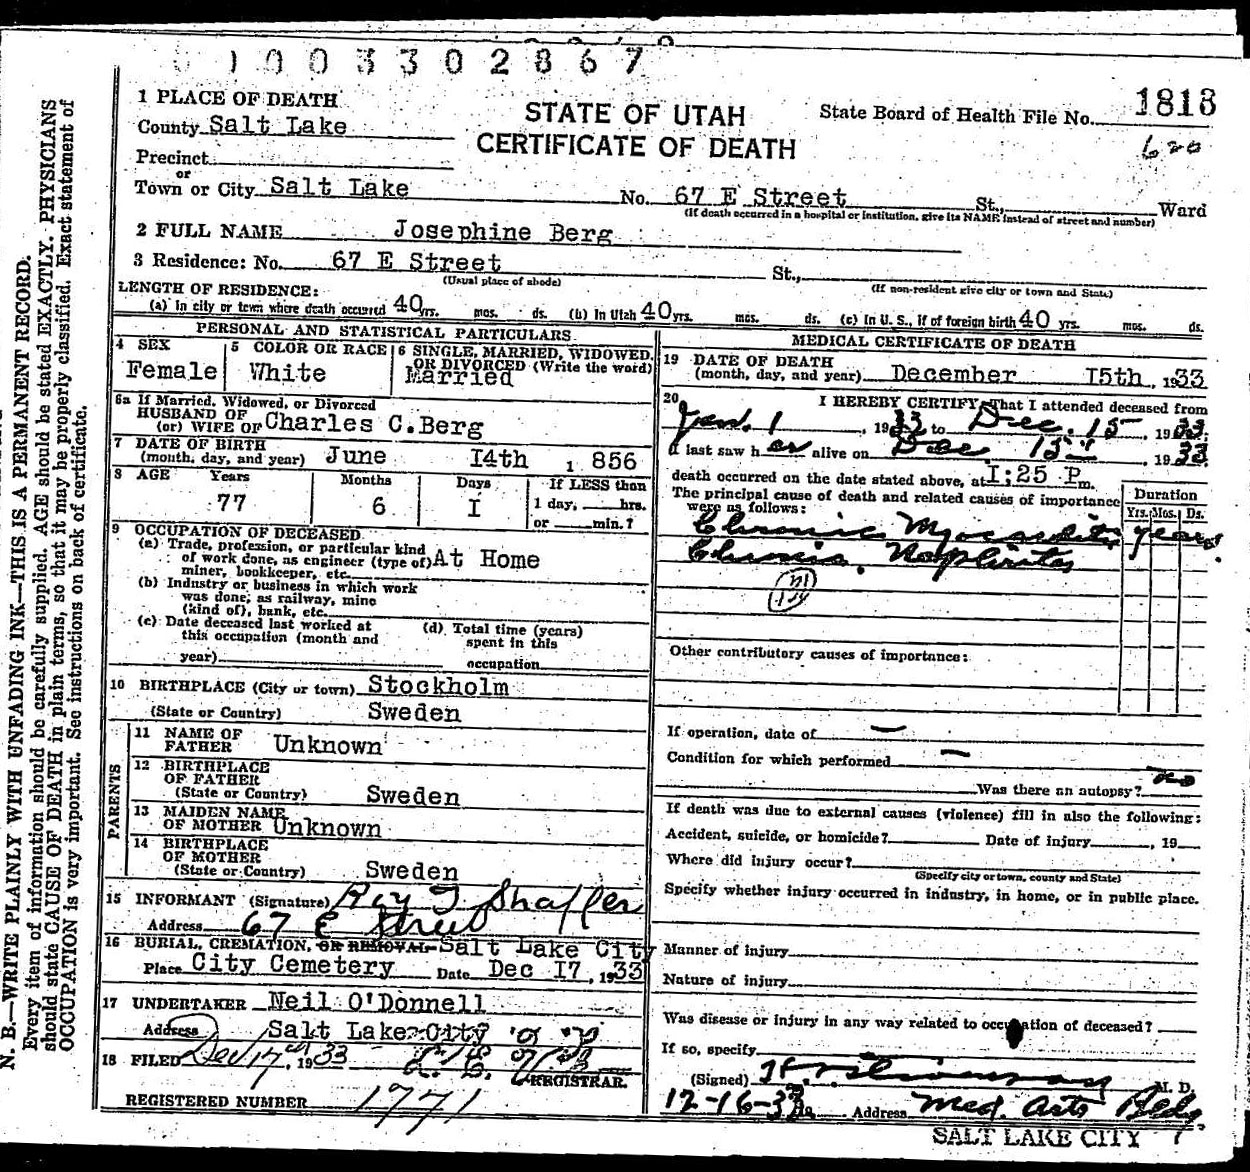 1003302867
1 PLACE OF DEATH
County Salt Lake
STATE OF UTAH
CERTIFICATE OF DEATH
State Board of Health File No. 1813
620
Precinct
or
Town or City Salt Lake No. 67 E Street St., Ward
(If death occurred in a hospital or institution, give its NAME instead of street and number)
2 FULL NAME Josephine Berg
3 Residence: No. 67 E Street St.,
(Usual place of abode) (If non-resident give city or town and State)
LENGTH OF RESIDENCE:
(a) In city or town where death occurred 40 yrs. mos. ds. (b) In Utah 40 yrs. mos. ds. (c) In U. S., if of foreign birth 40 yrs. mos. ds.
PERSONAL AND STATISTICAL PARTICULARS
4 SEX Female
5 COLOR OR RACE White
6 SINGLE, MARRIED, WIDOWED, OR DIVORCED (Write the word)
Married
6a If Married, Widowed, or Divorced
HUSBAND OF
(or) WIFE OF Charles C. Berg
7 DATE OF BIRTH
(month, day, and year) June I4th 1 856
8 AGE Years Months Days If LESS than
77 6 I 1 day, hrs.
or min.?
9 OCCUPATION OF DECEASED
(a) Trade, profession, or particular kind
of work done, as engineer (type of) At Home
miner, bookkeeper, etc.
(b) Industry or business in which work
was done, as railway, mine
(kind of), bank, etc.
(c) Date deceased last worked at
this occupation (month and
year)
(d) Total time (years)
spent in this
occupation
10 BIRTHPLACE (City or town) Stockholm
(State or Country) Sweden
PARENTS
11 NAME OF
FATHER Unknown
12 BIRTHPLACE
OF FATHER
(State or Country) Sweden
13 MAIDEN NAME
OF MOTHER Unknown
14 BIRTHPLACE
OF MOTHER
(State or Country) Sweden
15 INFORMANT (Signature) Roy T Shaffer
Address 67 E Street
16 BURIAL, CREMATION, OR REMOVAL Salt Lake City
Place City Cemetery Date Dec I7, 1933
17 UNDERTAKER Neil O'Donnell
Address Salt Lake City
18 FILED Dec 17th, 1933
REGISTRAR.
REGISTERED NUMBER 1771
MEDICAL CERTIFICATE OF DEATH
19 DATE OF DEATH
(month, day, and year) December I5th, 1933
20 I HEREBY CERTIFY, That I attended deceased from
Jan. 1, 1933 to Dec. 15 1933.
I last saw h er alive on Dec 15th 1933
death occurred on the date stated above, at I:25 P m.
The principal cause of death and related causes of importance
were as follows:
Duration
Yrs. Mos. Ds.
Chronic Myocarditis years
Chronic Nephritis
Other contributory causes of importance:
If operation, date of —
Condition for which performed —
Was there an autopsy? no
If death was due to external causes (violence) fill in also the following:
Accident, suicide, or homicide? Date of injury , 19
Where did injury occur?
(Specify city or town, county and State)
Specify whether injury occurred in industry, in home, or in public place.
Manner of injury
Nature of injury
Was disease or injury in any way related to occupation of deceased?
If so, specify
(Signed) M. D.
12-16-33 Address Med. Arts Bldg
SALT LAKE CITY
N. B.—WRITE PLAINLY WITH UNFADING INK—THIS IS A PERMANENT RECORD.
Every item of information should be carefully supplied. AGE should be stated EXACTLY. PHYSICIANS
should state CAUSE OF DEATH in plain terms, so that it may be properly classified. Exact statement of
OCCUPATION is very important. See instructions on back of certificate.